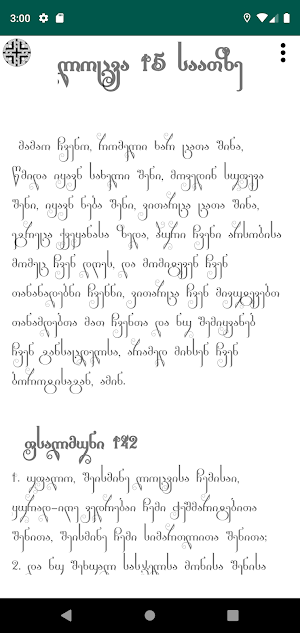 3:00
ლოცვა 15 საათზე
მამაო ჩვენო, რომელი ხარ ცათა შინა,
წმიდა იყავნ სახელი შენი, მოვედინ სუფევა
შენი, იყავნ ნება შენი, ვითარცა ცათა შინა,
ეგრეცა ქვეყანასა ზედა, პური ჩვენი არსობისა
მომეც ჩვენ დღეს, და მომიტევენ ჩვენ
თანანადებნი ჩვენნი, ვითარცა ჩვენ მივუტევებთ
თანამდებთა მათ ჩვენთა და ნუ შემიყვანებ
ჩვენ განსაცდელსა, არამედ მიხსენ ჩვენ
ბოროტისაგან, ამინ.
ფსალმუნი 142
1. უფალო, შეისმინე ლოცვისა ჩემისაი,
ყურად-იღე ვედრებაი ჩემი ჭეშმარიტებითა
შენითა, შეისმინე ჩემი სიმართლითა შენითა;
2. და ნუ შეხუალ სასჯელსა მონისა შენისა